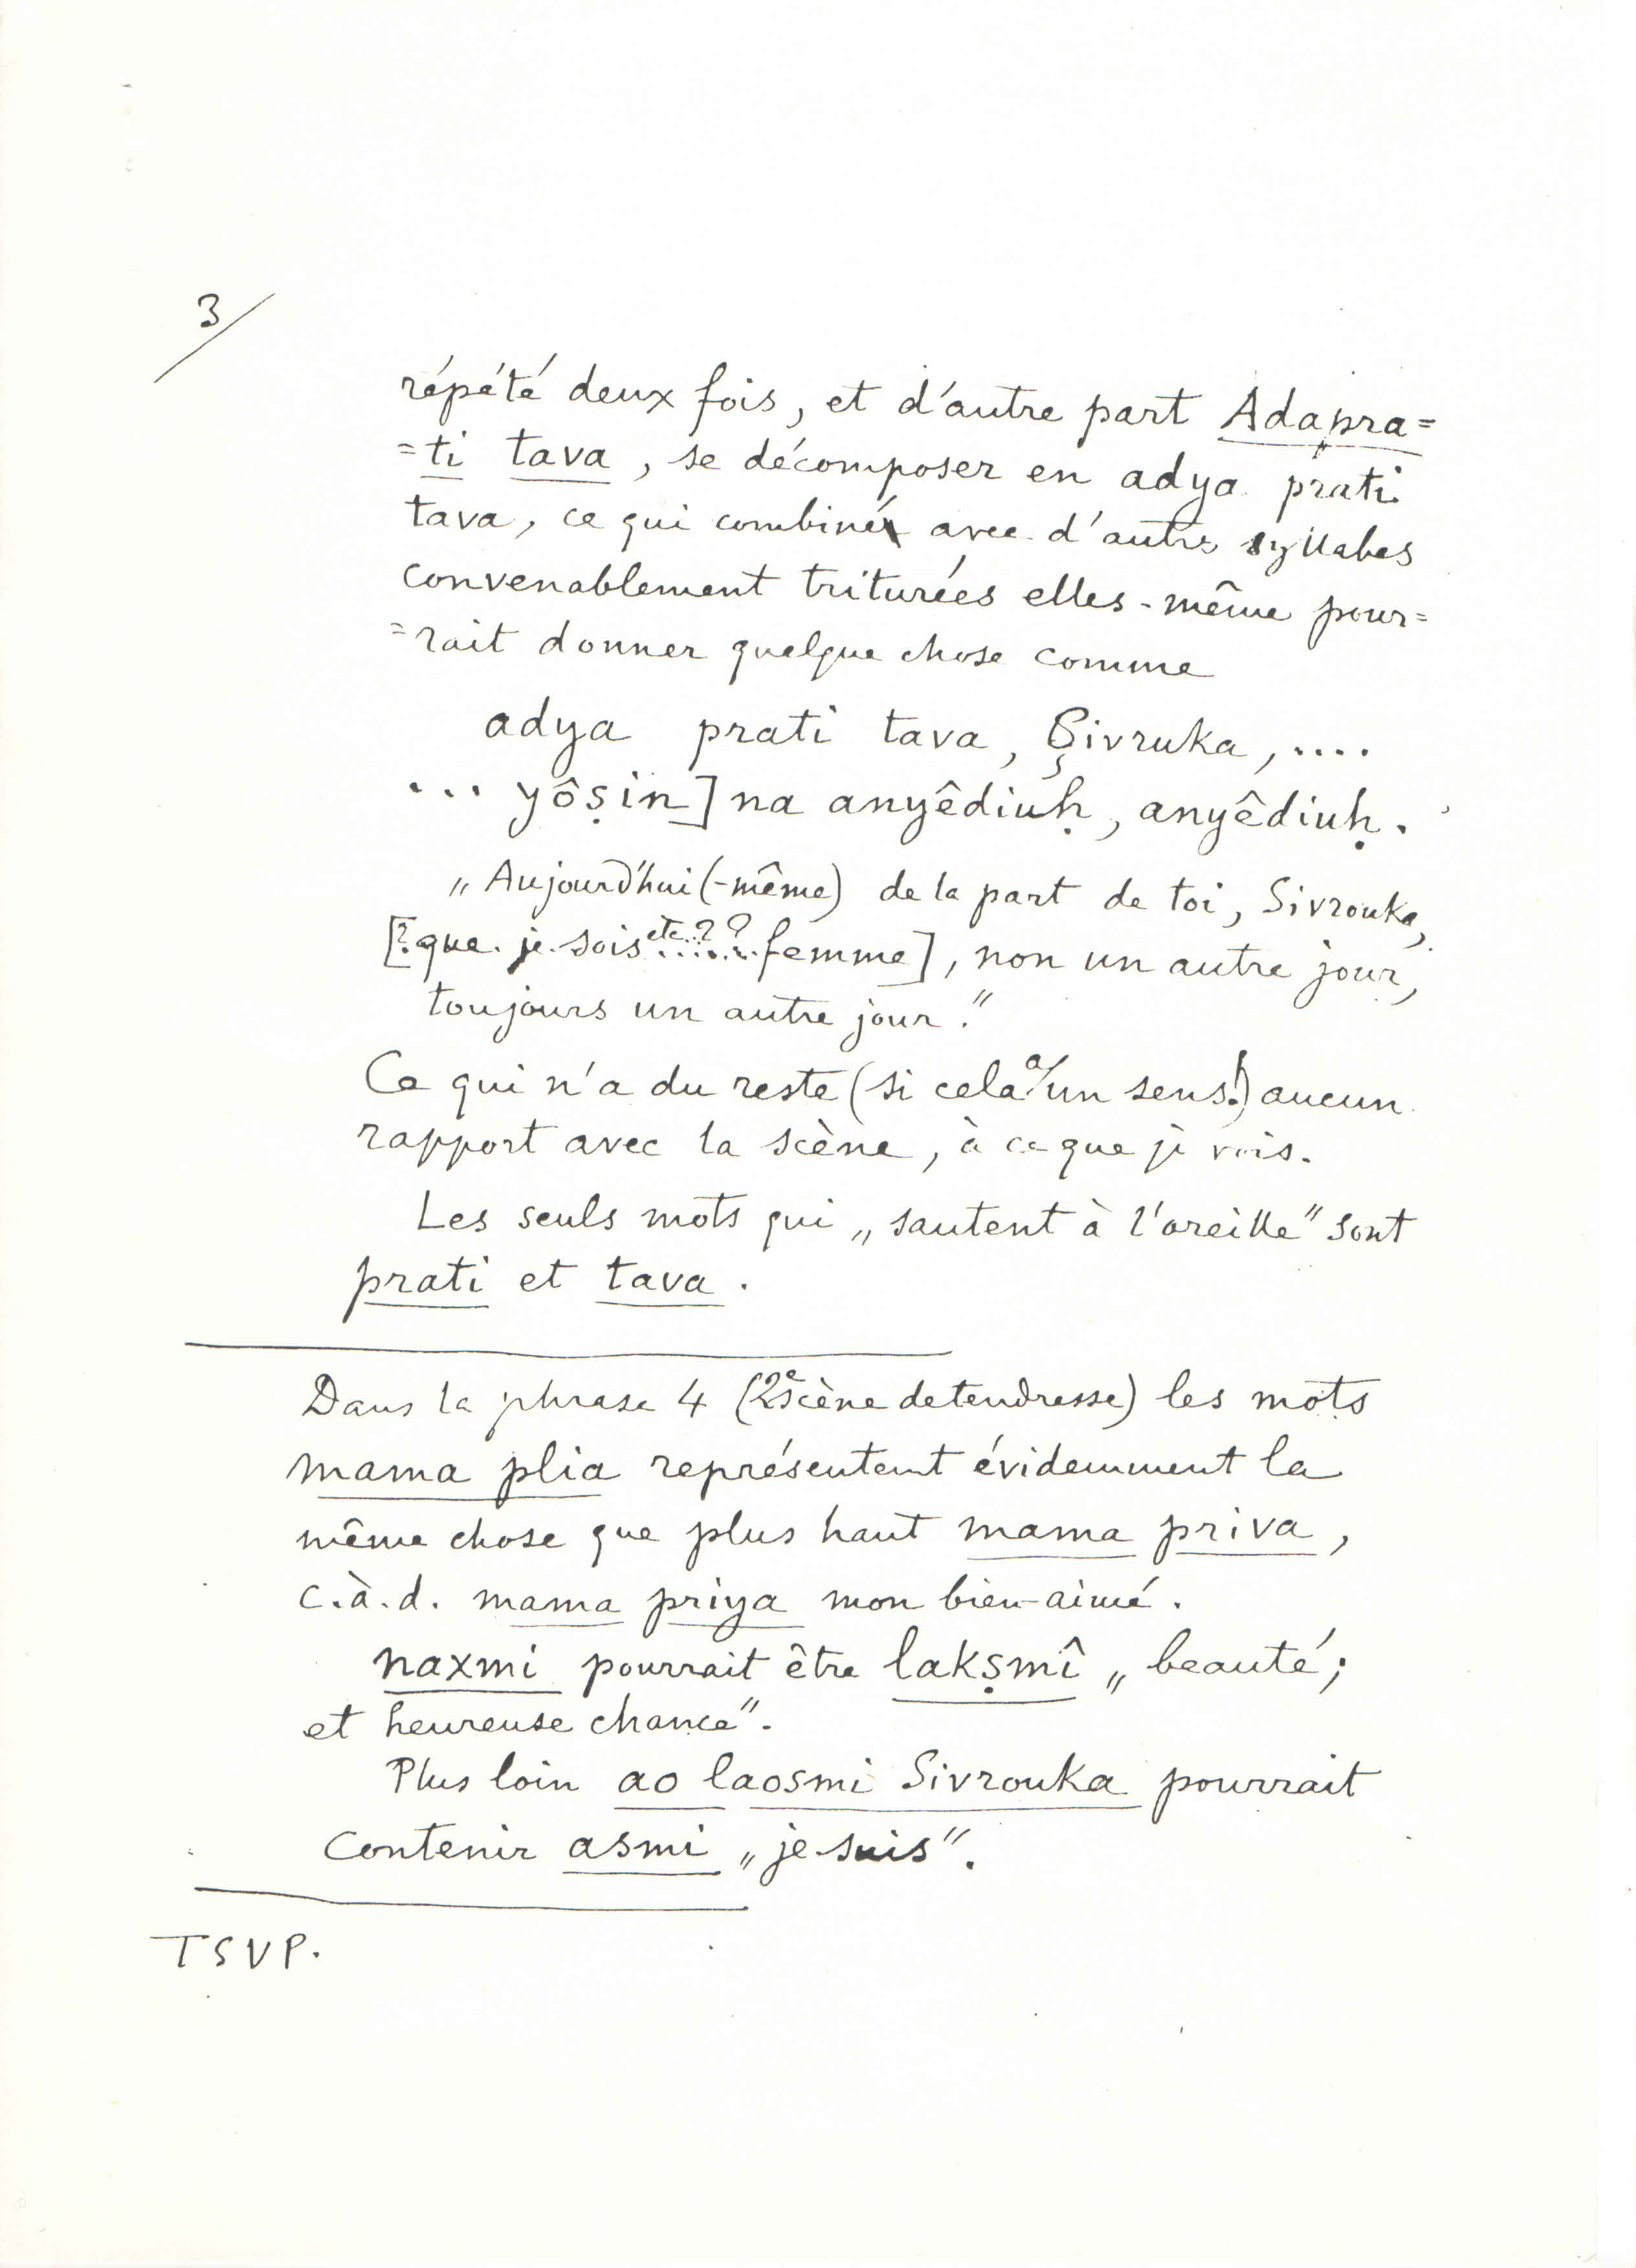 3/
répété deux fois, et d'autre part Adapra=
=ti tava, se décomposer en adya prati
tava, ce qui combiné avec d'autres syllabes
convenablement triturées elles-même pour=
=rait donner quelque chose comme
adya prati tava, Çivruka, ....
... yôṣin] na anyêdiuḥ, anyêdiuḥ.
„Aujourd'hui (-même) de la part de toi, Sivrouka,
[? que je sois etc.?? ...... femme], non un autre jour,
toujours un autre jour."
Ce qui n'a du reste (si cela a un sens!) aucun
rapport avec la scène, à ce que je vois.
Les seuls mots qui „sautent à l'oreille" sont
prati et tava.
Dans la phrase 4 (2e scène de tendresse) les mots
mama plia représentent évidemment la
même chose que plus haut mama priva,
c.à.d. mama priya mon bien-aimé.
naxmi pourrait être lakṣmî „beauté;
et heureuse chance".
Plus loin ao laosmi Sivrouka pourrait
contenir asmi „je suis".
TSVP.